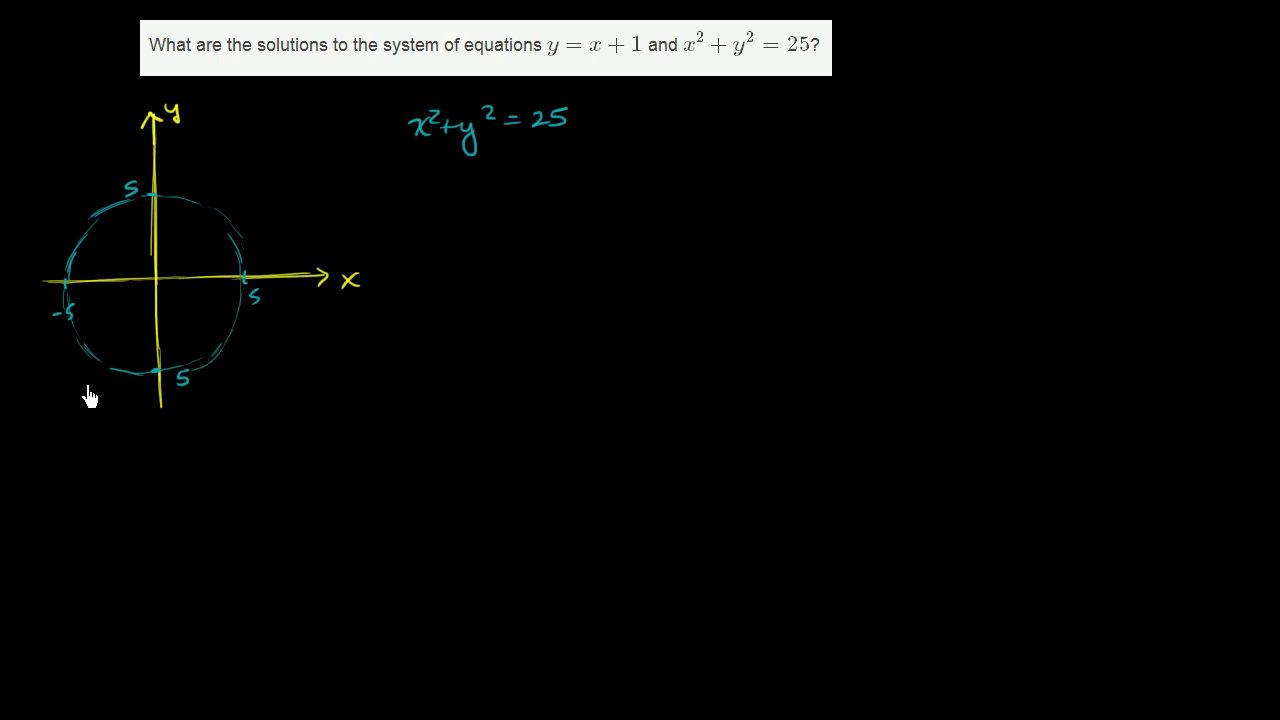 What are the solutions to the system of equations y = x + 1 and x² + y² = 25?
y
x² + y² = 25
5
x
5
-5
5